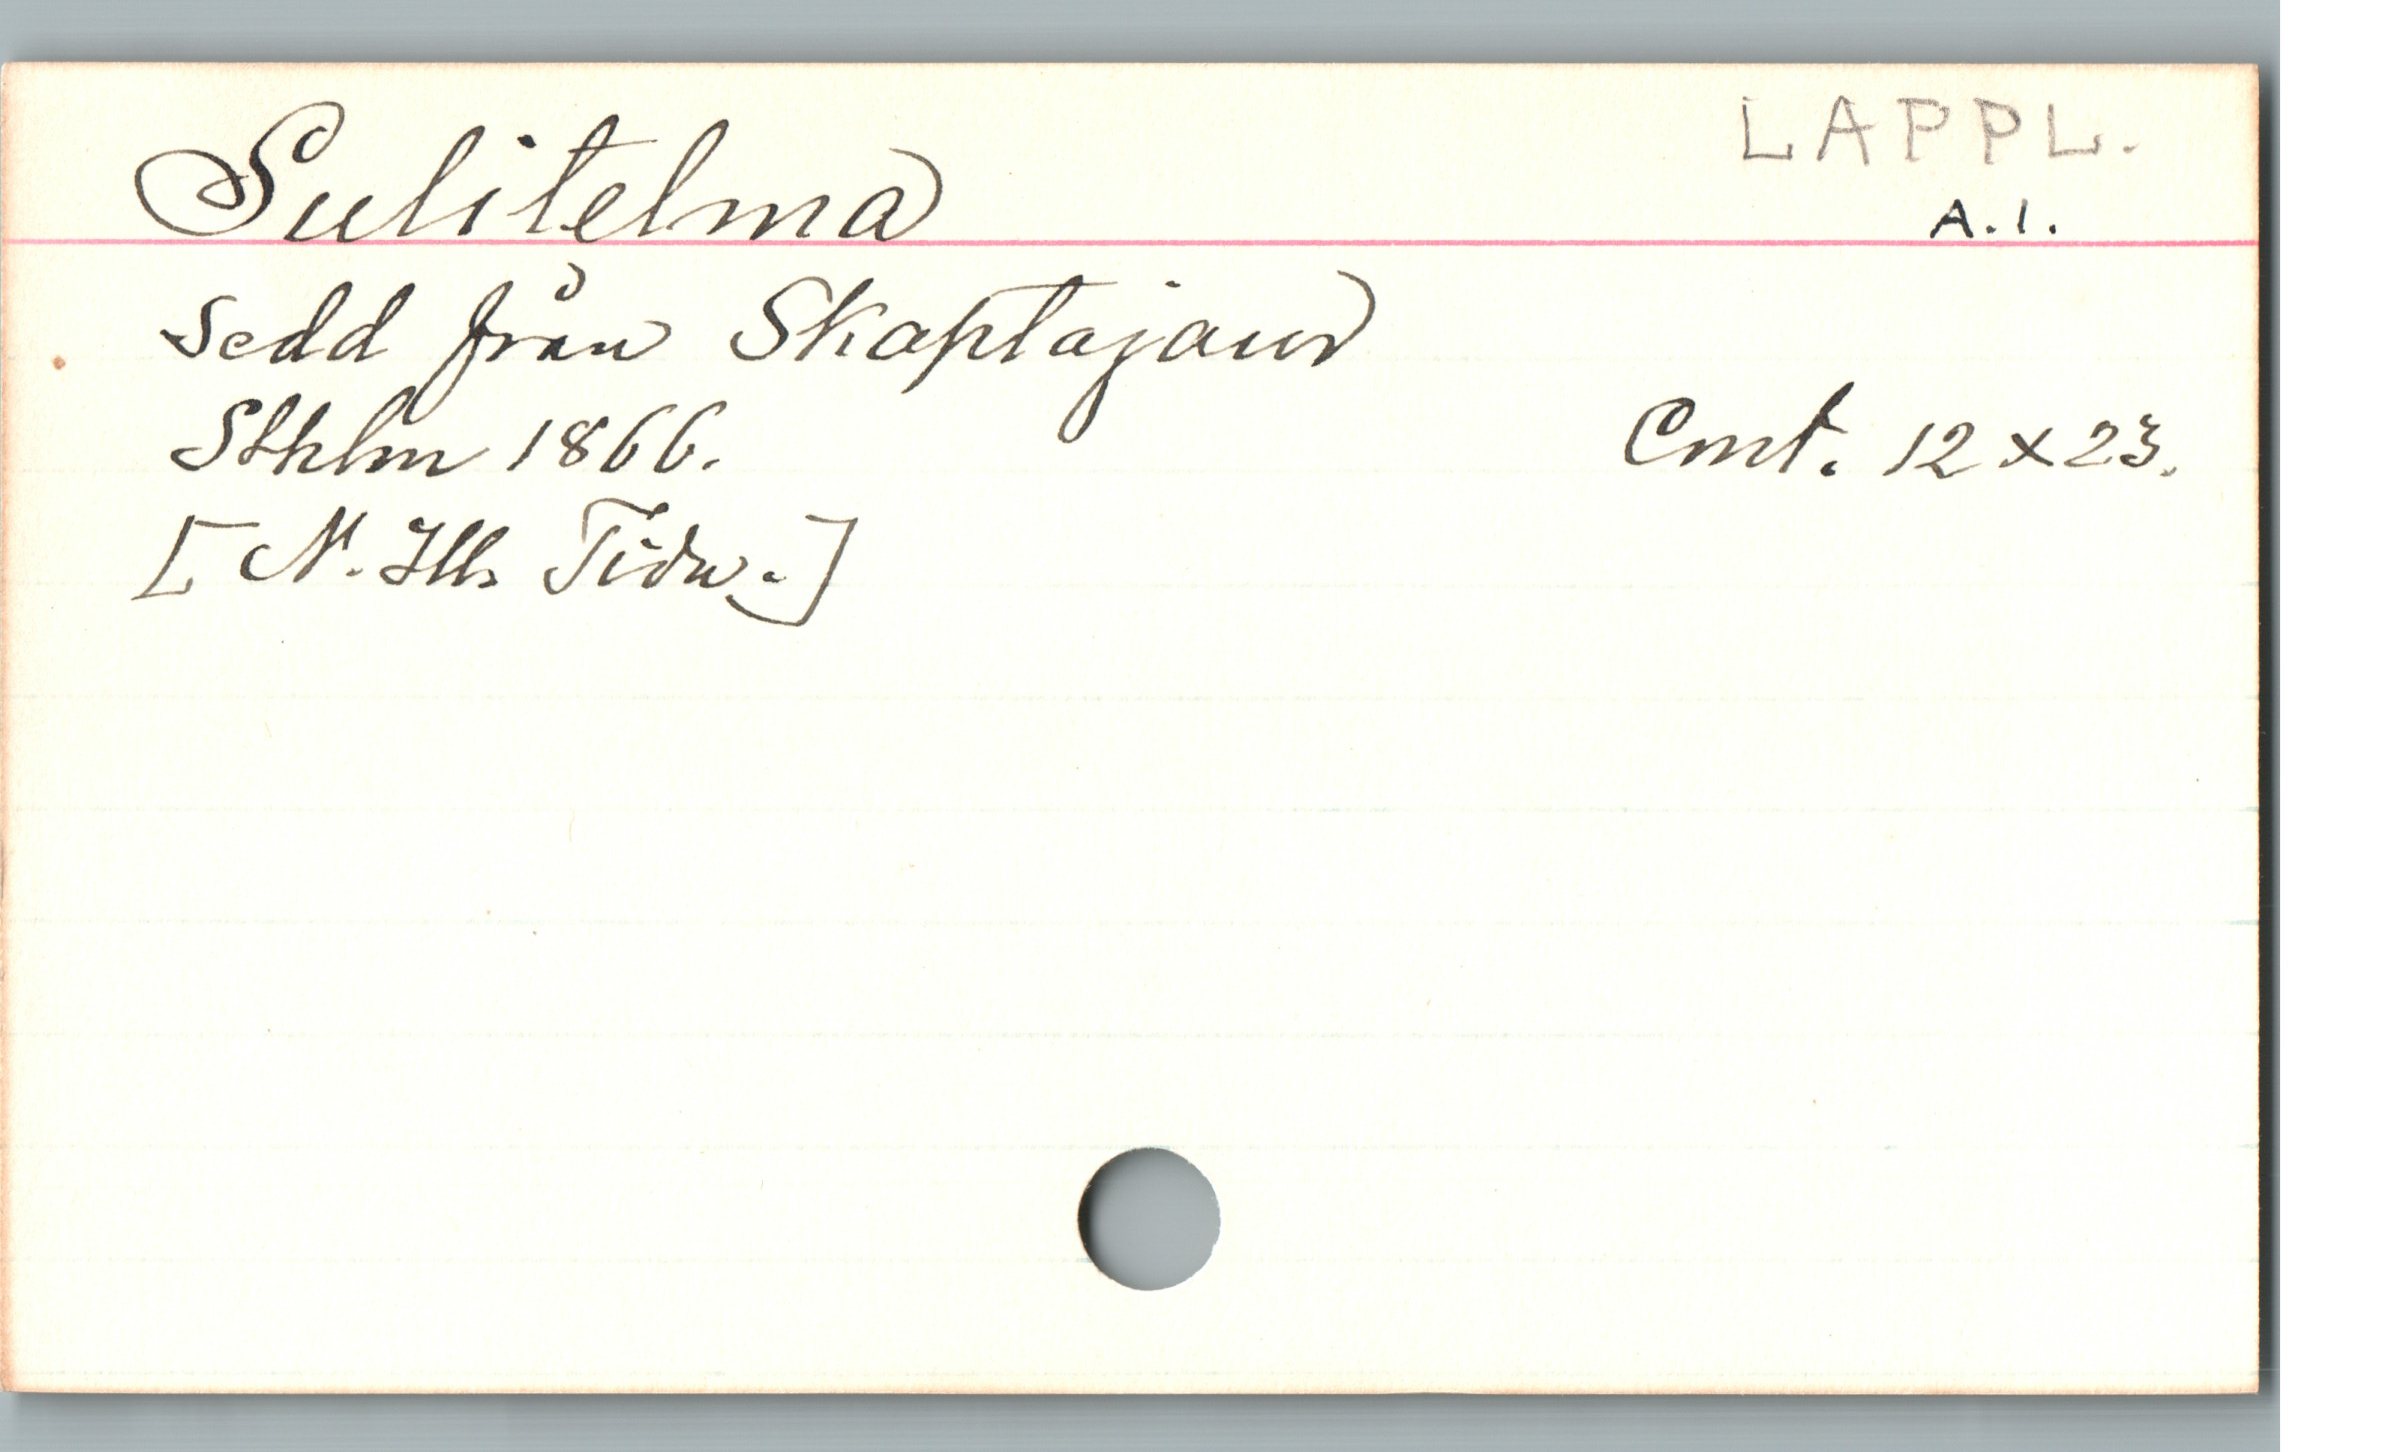 Sulitelma LAPPL.
A.1.
Sedd från Skaptajaur
Sthlm 1866. Cmt. 12 x 23.
[N. Ill. Tidn.]